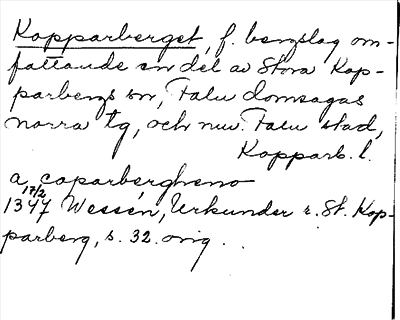 Kopparberget, f. bergslag om-
fattande en del av Stora Kop-
parbergs sn, Falu domsagas
norra tg, och nuv. Falu stad,
Kopparb. l.
a coparbergheno
17/2
1347 Wessén, Urkunder r. St. Kop-
parberg, s. 32. orig ..